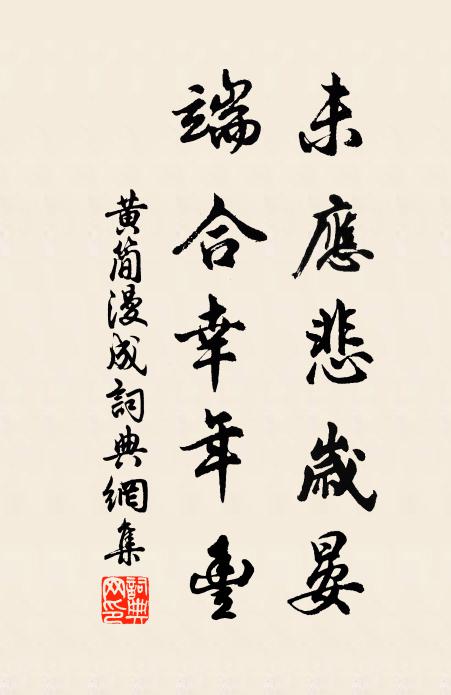 未應悲歲晏
端合幸年豐
黃簡漫成詞典網集
詞典
網印